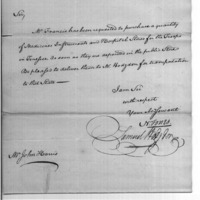 Sir,
Mr Francis has been requested to purchase a quantity
of Medicines Instruments and Hospital Stores for the Troops
in Service. As soon as they are deposited in the public Store
Be pleased to deliver them to Mr Hodgson for transportation
to that State —
I am Sir
with respect
Your Mo. Servant
Samuel Hodgdon
Mr John Harris